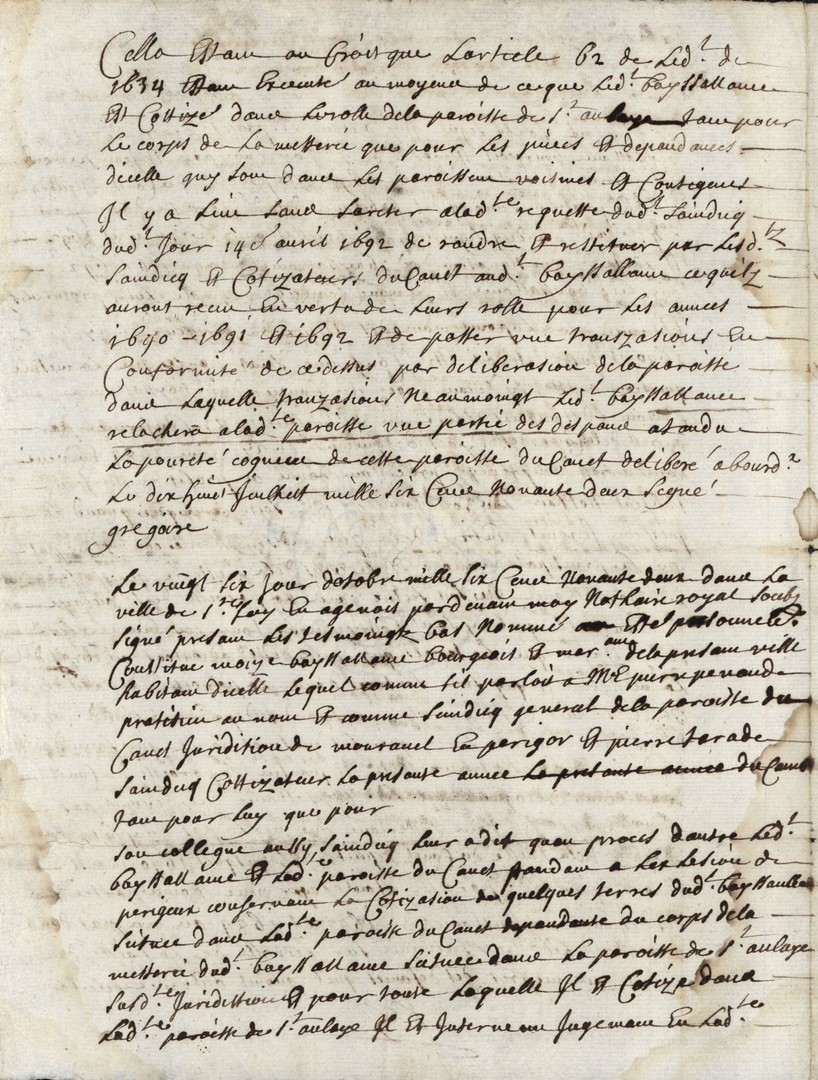 Cella Estant on Croit que Larticle 62 de Led.t de
1634 Estant Execute au moyens de ce que Led.t bayshallance
Est Cottizé dans Le rolle dela paroisse de s.t aulaye tant pour
Le corps de La metterie que pour Les pieces Et depandances
dicelle quy sont dans Les paroisses voisines Et Contigues
Il y a Lieu sans sarreter alad.te requette dud.t saindicq
dud.t Jour 14e avril 1692 de randre Et restituer par Lesd.tz
saindicq Et Cotizateurs du Canet aud.t bayshallance ce quilz
auront receu En vertu de Leurs rolle pour Les annees
1690 - 1691 Et 1692 Et de passer une tranzasions En
Conformité de cedessus par deliberasion dela paroisse
dans Laquelle tranzasions Neanmoingt Led.t bayshallance
relachera alad.te paroisse une partie des despans atandu
La poureté cogneue de cette paroisse du Canet deliberé abourd.x
Le dix huit Juilhet mille six Cens Nonante deux Signé
gregoire
Le vingt six Jour doctobre mille six Cens Nonante deux dans La
ville de s.te foy En agenois pardevant moy Nothaire royal Soubz
signé presant Les tesmoingtz bas Nommé Esté personnelle.
Constitue moize bayshallance bourgeois Et mar.ant dela presant ville
habitant dicelle Lequel comme sil parloit a M.e pierre penaud
pratitien au nom Et comme saindicq general dela paroisse du
Canet Juridition de mouravel En perigor Et pierre terade
saindicq Cottizateur La presante annee La presante annee du Canet
tant pour Luy que pour
son collegue aussy saindicq Leur a dit quau proces dantre Led.t
bayshallance Et Lad.te paroisse du Canet pandant a Lex Lesion de
perigeux consernant La Cotizasion de quelques terres dud.t bayshallance
scituee dans Lad.te paroisse du Canet depandante du corps dela
metterie dud.t bayshallance scituee dans La paroisse de s.t aulaye
susd.te Juridission Et pour toute Laquelle Il Est Cotize dans
Lad.te paroisse de s.t aulaye Il Est Interveneu Jugemant En Lad.te